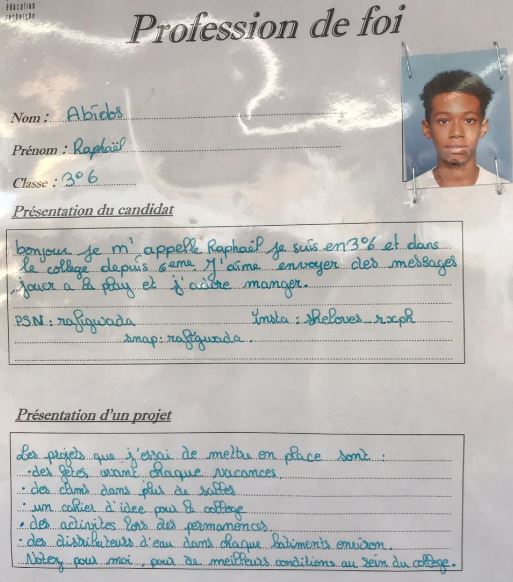 éducation
recherche
Profession de foi
Nom : Abidos
Prénom : Raphaël
Classe : 3°6
Présentation du candidat
bonjour je m'appelle Raphaël je suis en 3°6 et dans
le collège depuis 6eme. J'aime envoyer des messages
jouer a la play et j'adore manger.
PSN : rafigwada Insta : sheloves_rxph
snap : rafigwada.
Présentation d'un projet
Les projets que j'essai de mettre en place sont :
- des fêtes avant chaque vacances
- des clims dans plus de salles
- un cahier d'idee pour le collège
• des activites lors des permanences
- des distributeurs d'eau dans chaque batiments environ.
Votez pour moi, pour de meilleurs conditions au sein du collège.